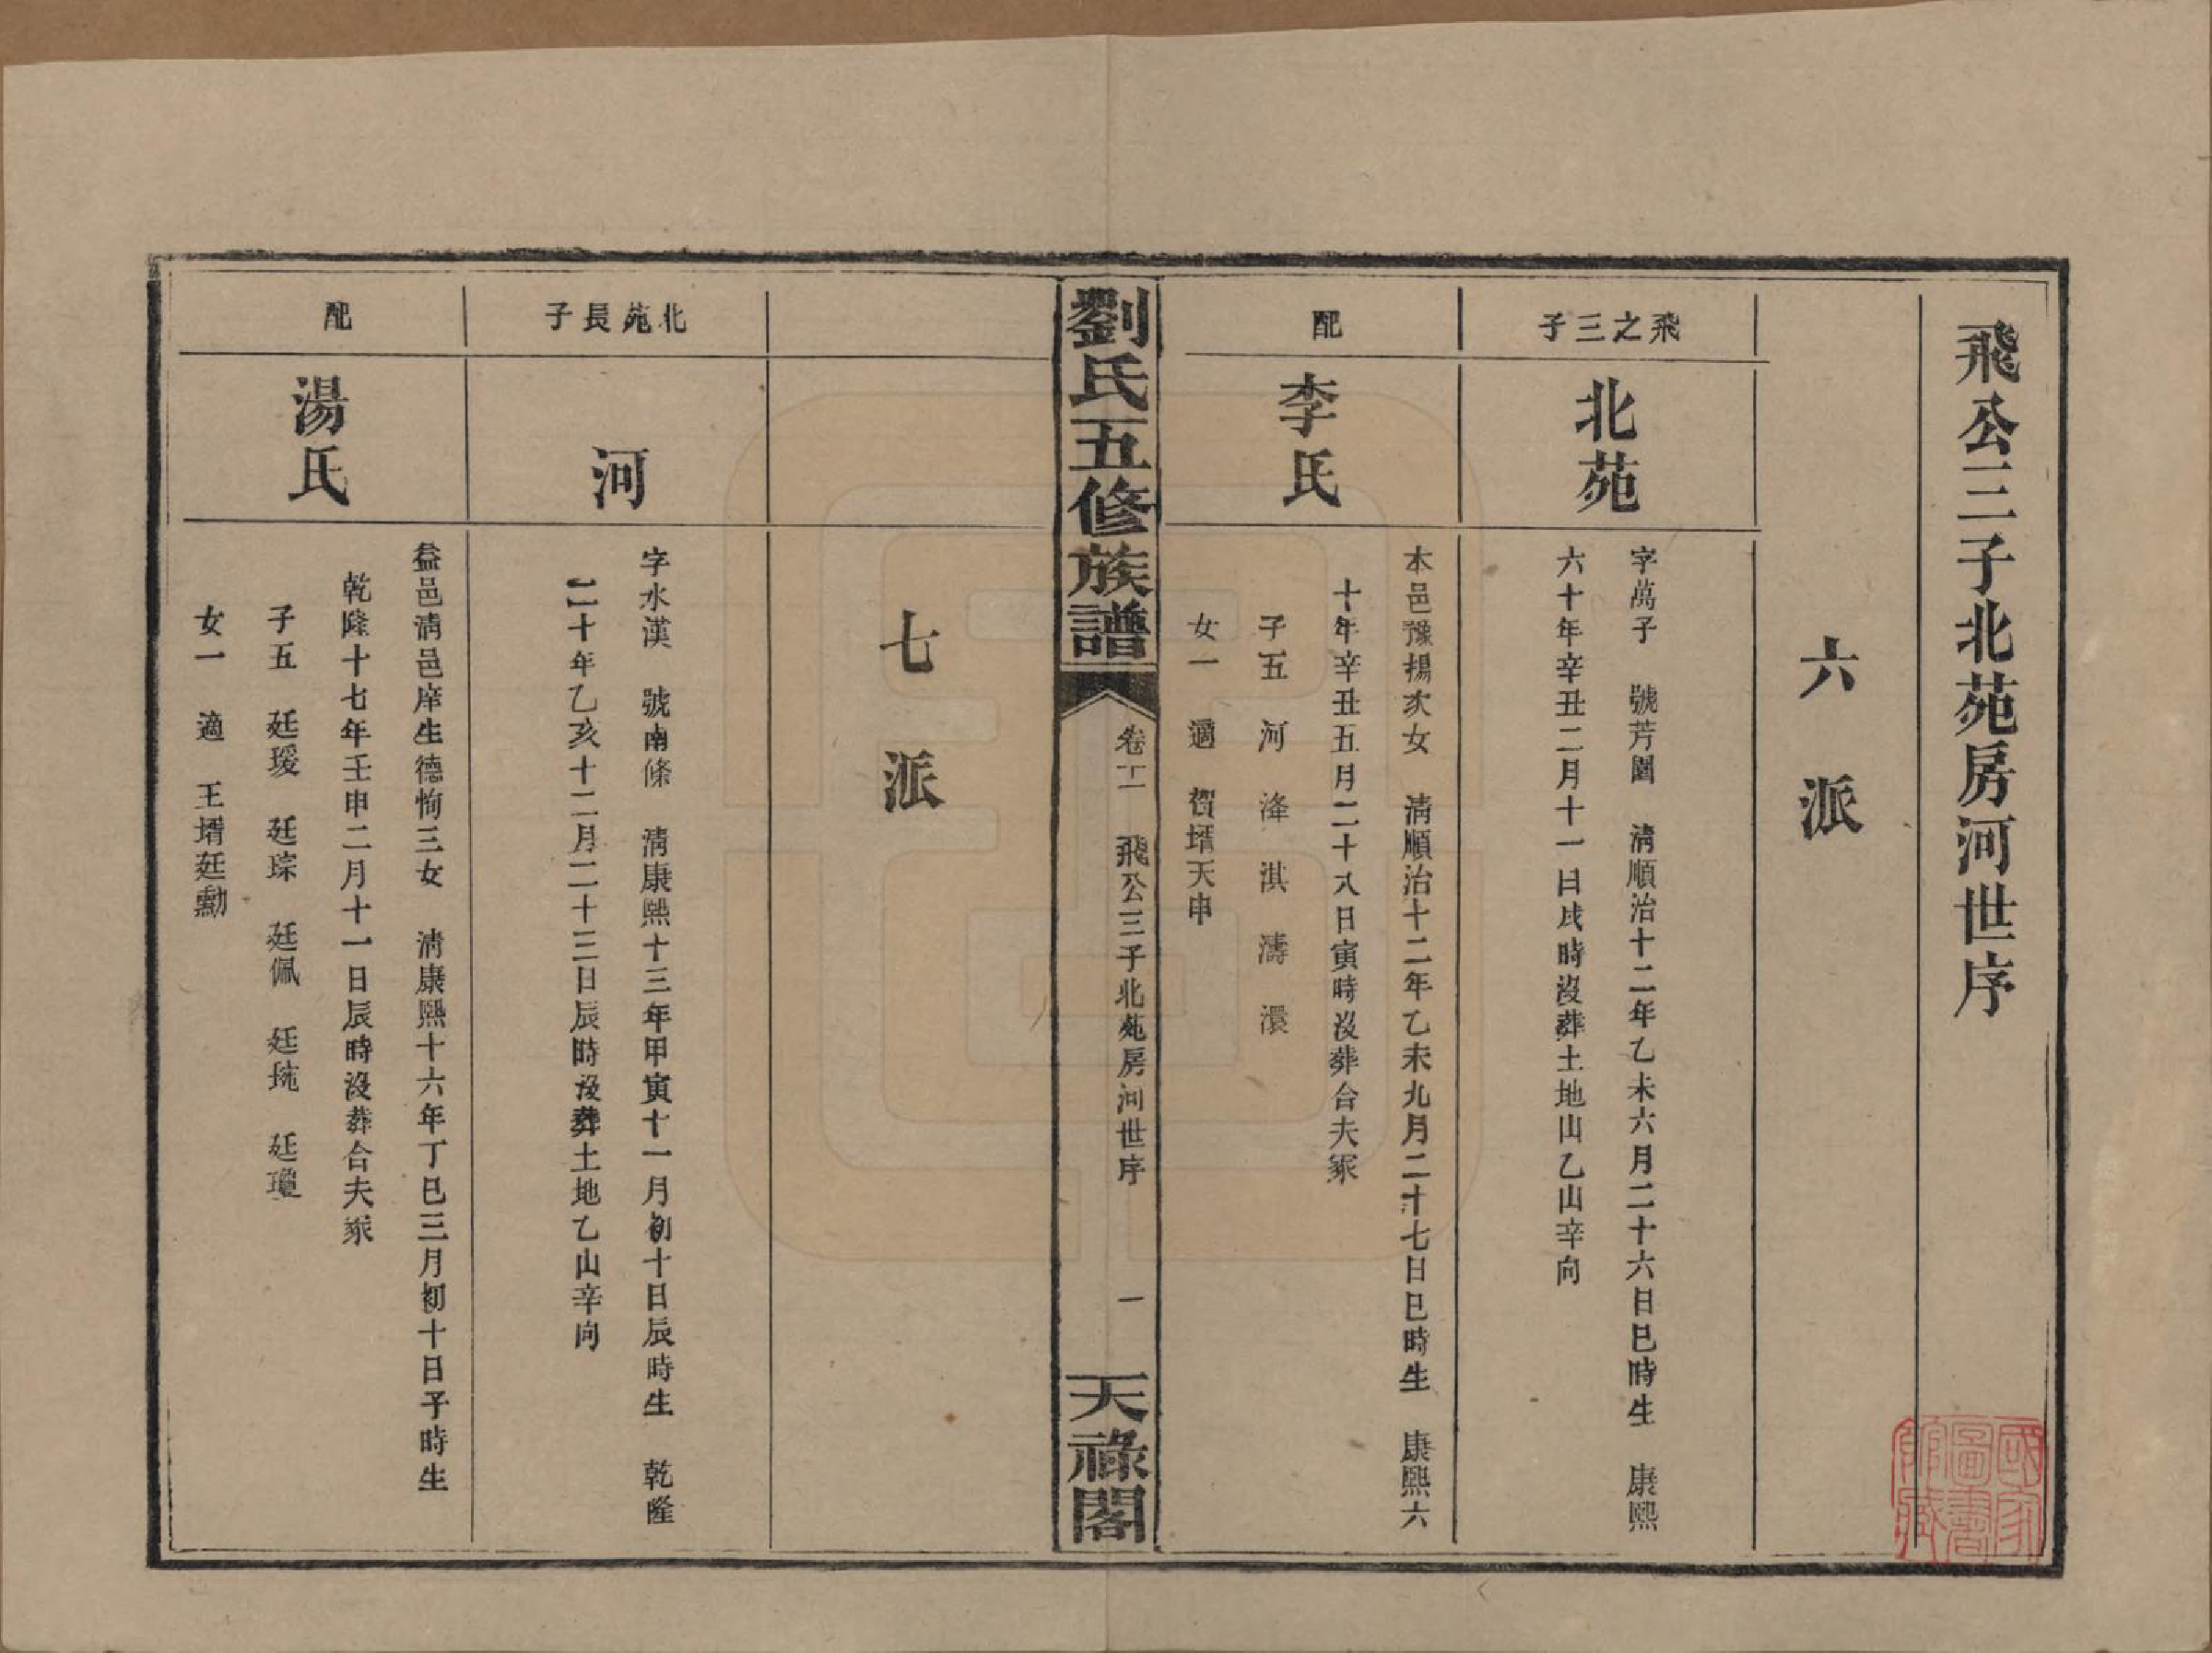 飛公三子北苑房河世序
六派
飛之三子
北苑
字萬子　號芳園　清順治十二年乙未六月二十六日巳時生　康熙
六十年辛丑二月十一日戌時沒葬土地山乙山辛向
配
李氏
本邑豫揚次女　清順治十二年乙未九月二十七日巳時生　康熙六
十年辛丑五月二十八日寅時沒葬合夫冢
子五　河　洚　淇　濤　澴
女一　適　賀壻天申
劉氏五修族譜
卷十二　飛公三子北苑房河世序
一
天祿閣
七派
北苑長子
河
字水漢　號南條　清康熙十三年甲寅十一月初十日辰時生　乾隆
二十年乙亥十二月二十三日辰時沒葬土地乙山辛向
配
湯氏
益邑清邑庠生德恂三女　清康熙十六年丁巳三月初十日子時生
乾隆十七年壬申二月十一日辰時沒葬合夫冢
子五　廷瑷　廷琮　廷佩　廷珫　廷瓊
女一　適　王壻廷勳
國家圖書館藏